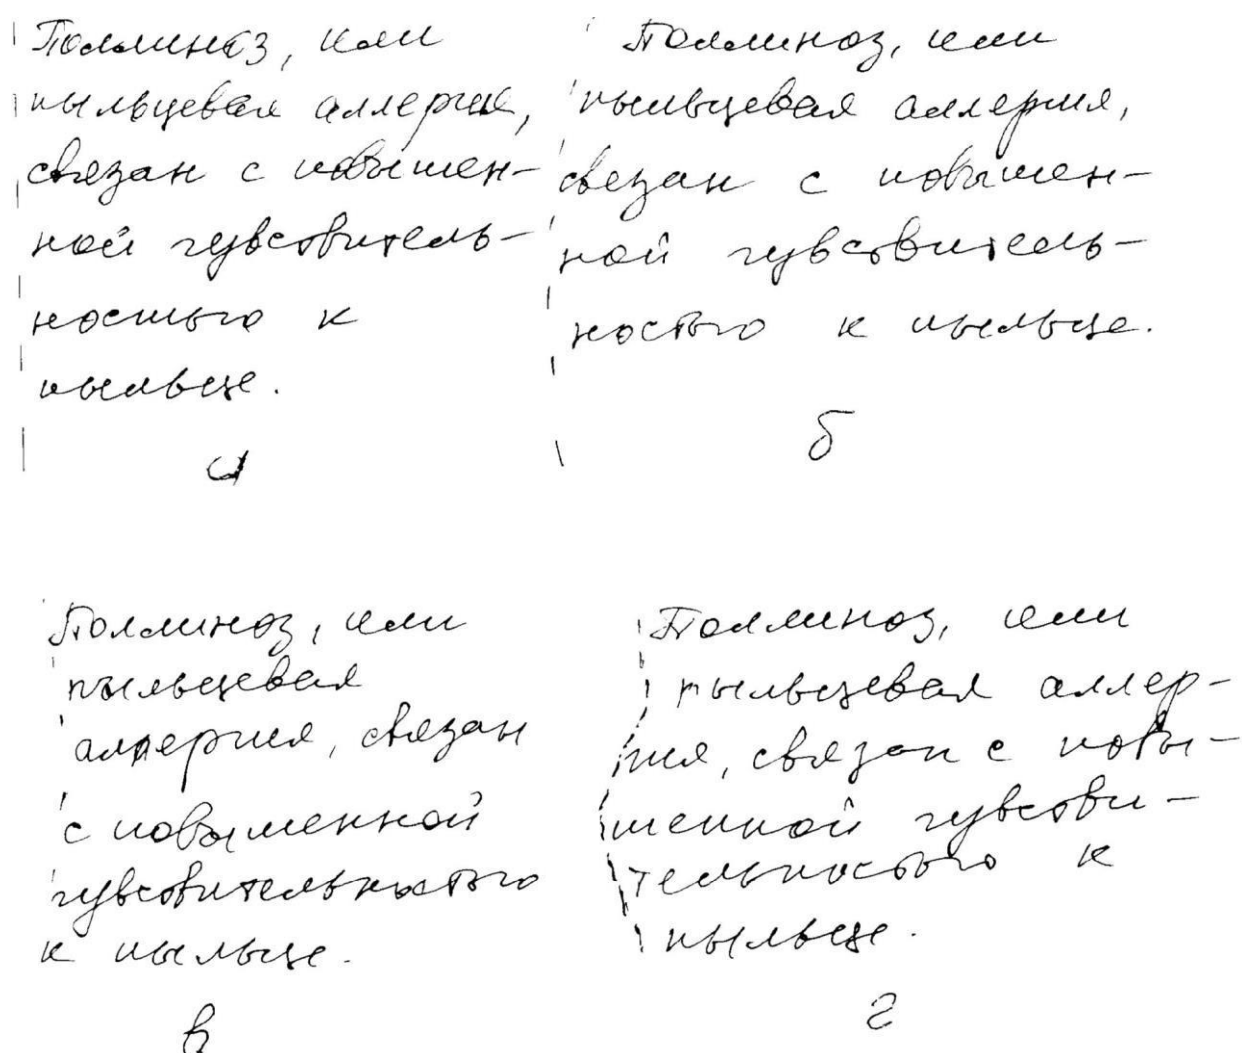 Поллиноз, или
пыльцевая аллергия,
связан с повышен-
ной чувствитель-
ностью к
пыльце.
а
Поллиноз, или
пыльцевая аллергия,
связан с повышен-
ной чувствитель-
ностью к пыльце.
б
Поллиноз, или
пыльцевая
аллергия, связан
с повышенной
чувствительностью
к пыльце.
в
Поллиноз, или
пыльцевая аллер-
гия, связан с повы-
шенной чувстви-
тельностью к
пыльце.
г